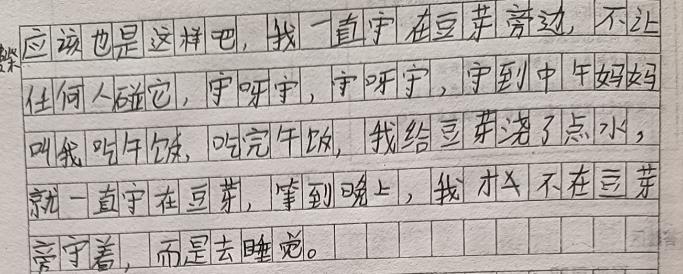 应该也是这样吧，我一直守在豆芽旁边，不让
任何人碰它，守呀守，守呀守，守到中午妈妈
叫我吃午饭，吃完午饭，我给豆芽浇了点水，
就一直守在豆芽，等到晚上，我才不在豆芽
旁守着，而是去睡觉。